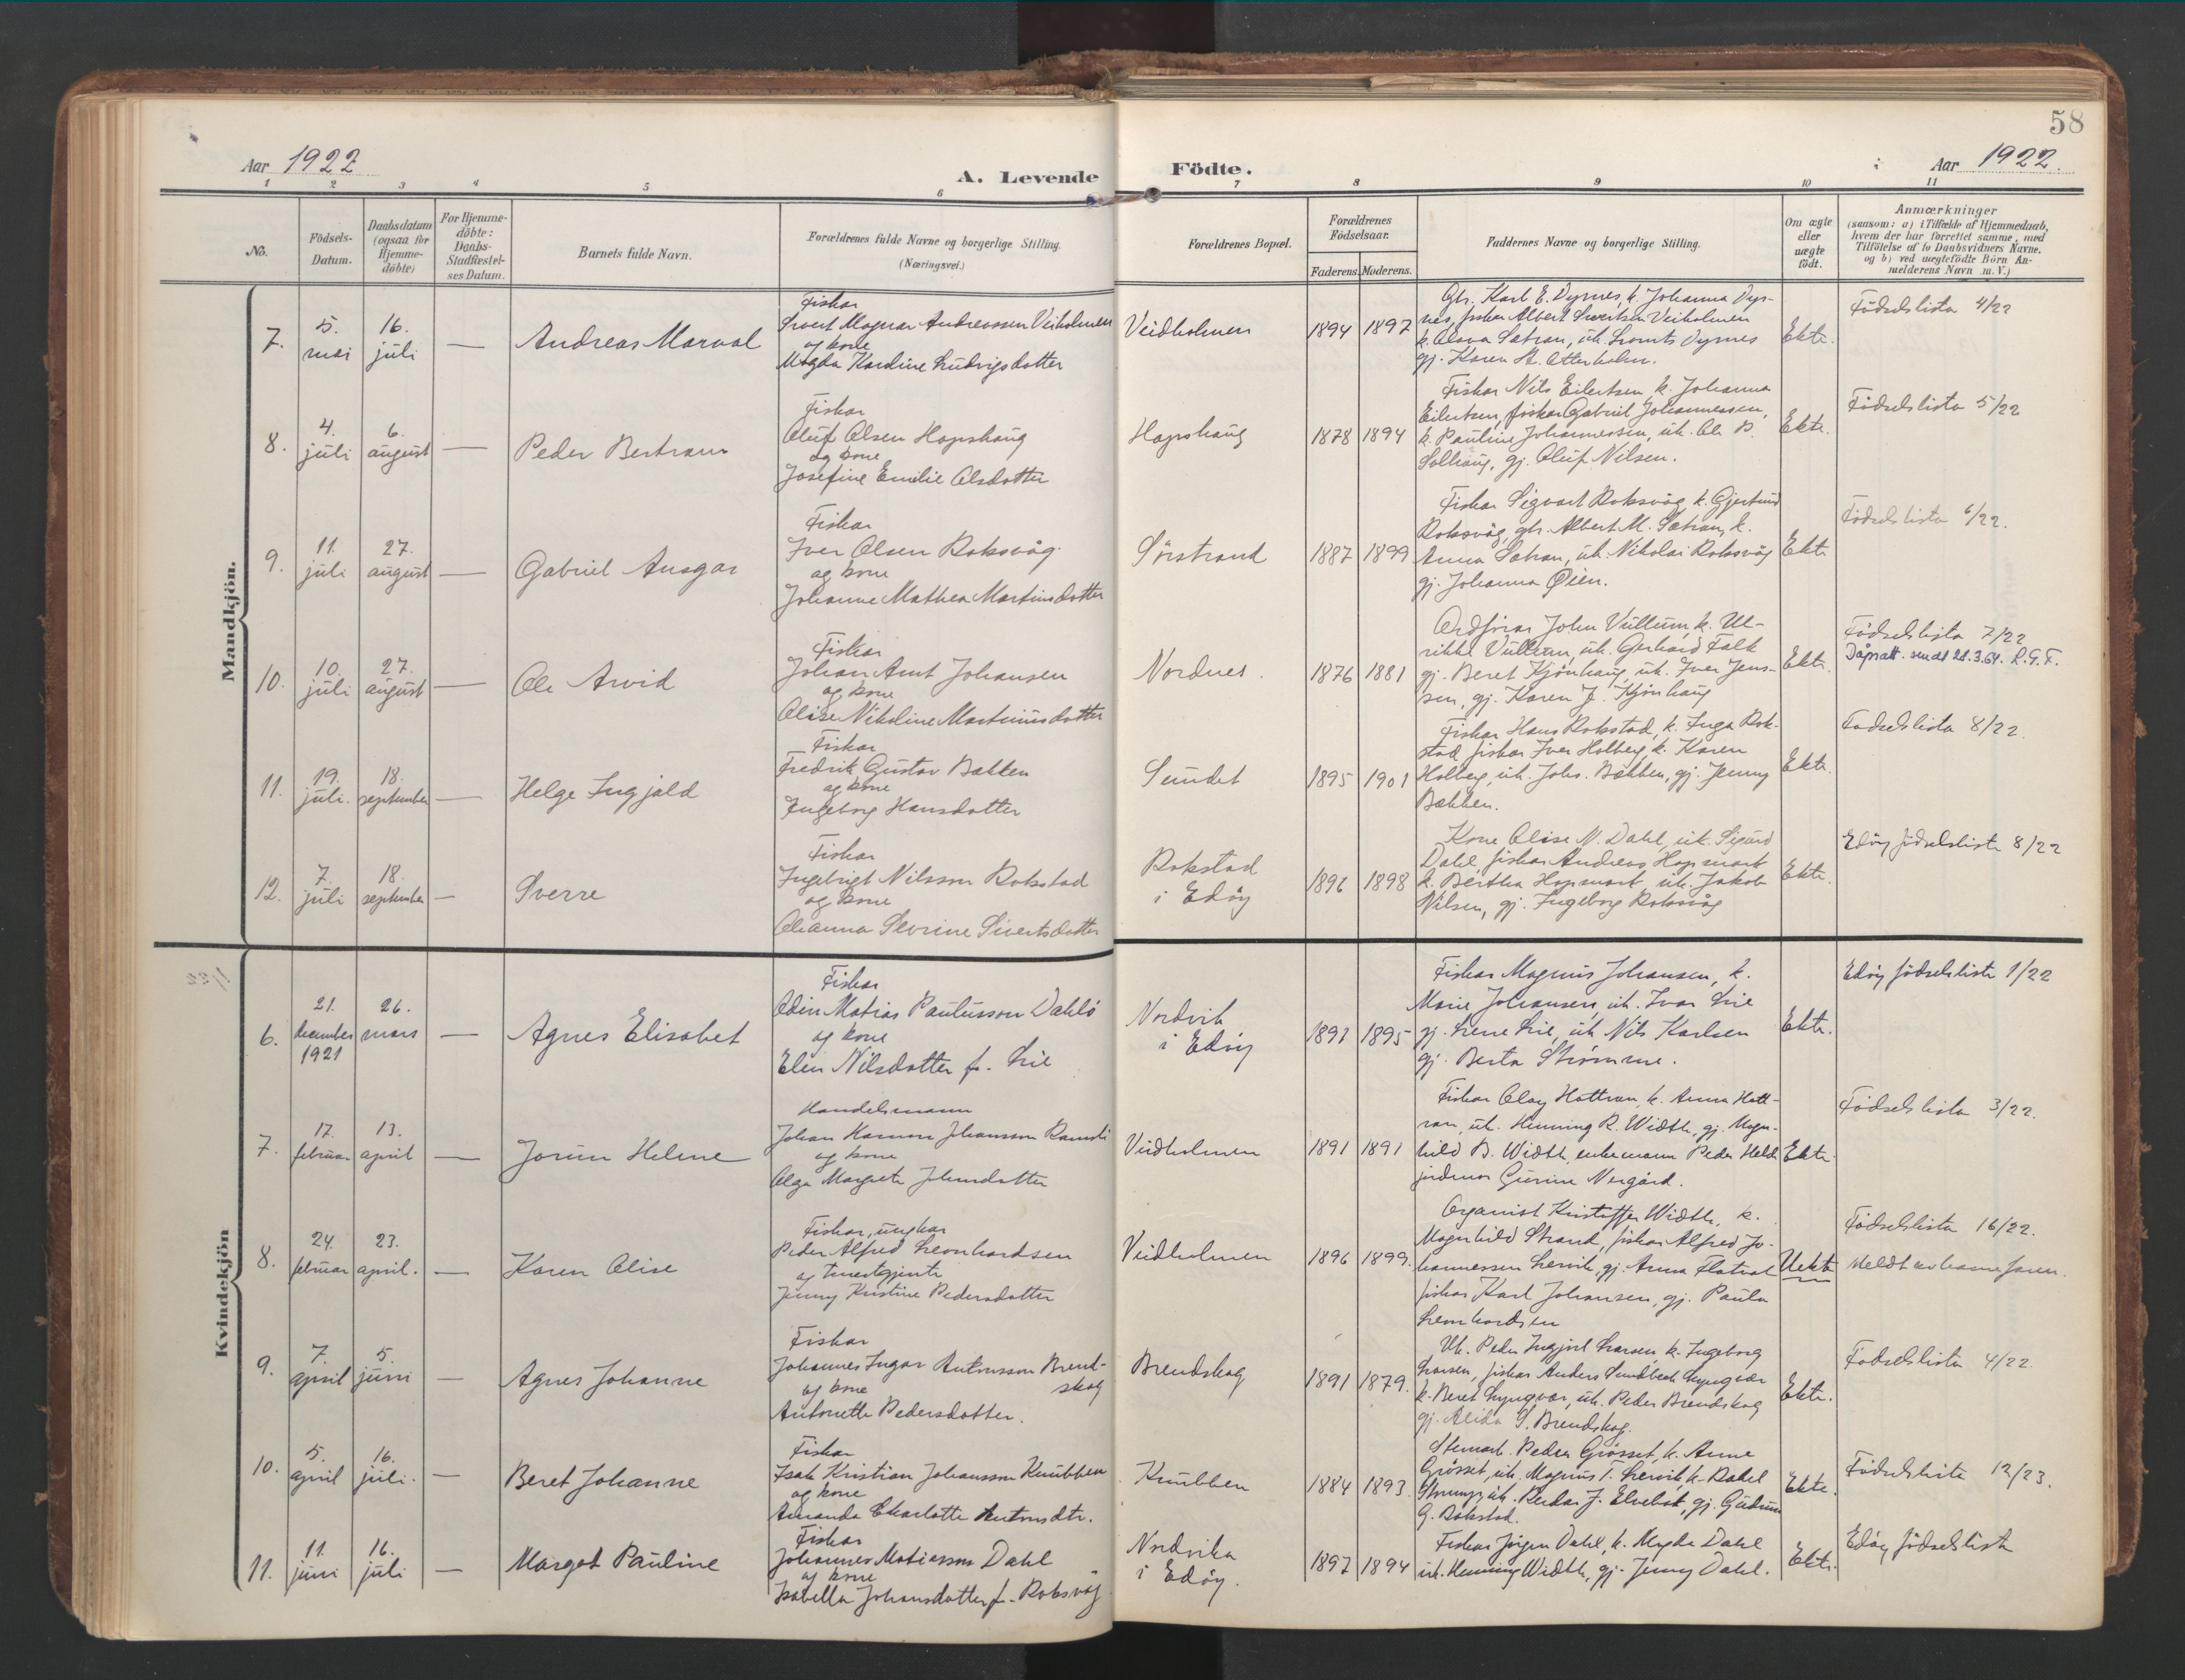 58
Aar 1922
A. Levende Födte.
Aar 1922.
1 2 3 4 5 6 7 8 9 10 11
No.
Födsels-
Datum.
Daabsdatum
(ogsaa for
Hjemme-
döbte)
For Hjemme-
döbte:
Daabs-
Stadfæstel-
ses Datum.
Barnets fulde Navn.
Forældrenes fulde Navne og borgerlige Stilling.
(Næringsvei.)
Forældrenes Bopæl.
Forældrenes
Födselsaar.
Faderens. Moderens.
Faddernes Navne og borgerlige Stilling.
Om ægte
eller
uægte
födt.
Anmærkninger
(saasom: a) i Tilfælde af Hjemmedaab,
hvem der har forrettet samme, med
Tilföielse af to Daabsvidners Navne.
og b) ved uægtefödte Börn An-
melderens Navn m. V.)
Mandkjön.
7.
5.
mai
16.
juli
—
Andreas Marval
Fiskar
Sivert Magnar Andreassen Veiholmen
og kone
Magda Kardine Ludvigsdotter
Veidholmen
1894 1897
Gbr. Karl E. Dyrnes, k. Johanna Dyr-
nes, fiskar Albert Sivertsen Veiholmen
k. Olava Sætran, uk. Dyrnes
gj. Karen Otterholm.
Ekte.
Födselslista 4/22
8.
4.
juli
6.
august
—
Peder Bertram
Fiskar
Oluf Olsen Hopshaug
og kone
Josefine Emilie Olsdotter
Hopshaug
1878 1894
Fiskar Nils Eilertsen, k. Johanna
Eilertsen, fiskar Gabriel Johannessen,
k. Pauline Johannessen, uk. Ole P.
Solhaug, gj. Oluf Nilsen.
Ekte.
Födselslista 5/22
9.
11.
juli
27.
august
—
Gabriel Ansgar
Fiskar
Iver Olsen Roksvåg
og kone
Johanne Mathea Martinsdotter
Sörstrand
1887 1899
Fiskar Sigvart Roksvåg, k. Gjertrud
Roksvåg, gbr. Albert M. Sætran, k.
Anna Sætran, uk. Nikolai Roksvåg
gj. Johanna Øien.
Ekte
Födselslista 6/22.
10.
10.
juli
27.
august
—
Ole Arvid
Fiskar
Johan Arnt Johansen
og kone
Olise Nikoline Martinusdotter
Nordnes.
1876 1881
Ordförar John Vullum, k. Ul-
rikke Vullum, uk. Gerhard Falk
gj. Beret Kjönhaug, uk. Iver Jens-
sen, gj. Karen J. Kjönhaug
Ekte.
Födselslista 7/22
Dåpsatt. sendt 21.3.64. R.G.F.
11.
19.
juli.
18.
september
—
Helge Ingjald
Fiskar
Fredrik Gustav Bakken
og kone
Ingeborg Hansdotter
Sundet
1895 1901
Fiskar Hans Rokstad, k. Inga Rok-
stad, fiskar Iver Holberg, k. Karen
Holberg, uk. Johs. Bakken, gj. Jenny
Bakken.
Ekte.
Födselslista 8/22.
12.
7.
juli
18.
september
—
Sverre
Fiskar
Ingebrigt Nilsson Rokstad
og kone
Olianna Sevrine Sivertsdotter
Rokstad
i Edöy
1896 1898
Kone Olise N. Dahl, uk. Sigurd
Dahl, fiskar Andreas Hopmark
k. Bertha Hopmark, uk. Jakob
Nilsen, gj. Ingeborg Roksvåg
Ekte.
Edöy födselsliste 8/22
Kvindekjön
6.
21.
december
1921
26.
mars
—
Agnes Elisabet
Fiskar
Odin Matias Paulusson Dahlö
og kone
Elen Nilsdotter f. Lie
Nordvik
i Edöy
1891 1895
Fiskar Magnus Johansen, k.
Marie Johansen, uk. Ivar Lie
gj. Lene Lie, uk. Nils Karlsen
gj. Berta Strömme.
Ekte.
Edöy födselsliste 1/22
7.
17.
februar
13.
april
—
Jorun Helene
Handelsmann
Johan Johansson
og kone
Olga Margrete Johnsdotter
Veidholmen
1891 1891
Fiskar Olay Hattran, k. Anna Hatt-
ran, uk. Henning R. Width, gj. Magn-
hild B. Width, enkemann Peder
jordmor Gurine Nergård.
Ekte.
Födselslista 3/22.
8.
24.
februar
23.
april.
—
Karen Olise
Fiskar, ungkar
Peder Alfred Leonhardsen
og tenestgjente
Jenny Kristine Pedersdotter
Veidholmen
1896 1899.
Organist Kristoffer Width, k.
Magnhild Strand, fiskar Alfred Jo-
hannessen Lervik, gj. Anna
fiskar Karl Johansen, gj. Paula
Leonhardsen
Uekte
Födselslista 16/22.
Meldt av barnefaren.
9.
7.
april
5.
juni
—
Agnes Johanne
Fiskar
Johannes Ingvar Antonsson Brend-
skog
og kone
Antonette Pedersdotter.
Brendskog
1891 1879.
Uk. Peder Ingjert Larsen, k. Ingeborg
Larsen, fiskar Anders Sundbeck Lyngvær
k. Beret Lyngvær, uk. Peder Brendskog
gj. Alida S. Brendskog.
Ekte.
Födselslista 4/22.
10.
5.
april
16.
juli.
—
Beret Johanne
Fiskar
Isak Kristian Johansson Knubben
og kone
Amanda Charlotte Antonsdtr.
Knubben
1884 1893.
Peder Grösset, k. Anne
Grösset, uk. Magnus T. Lervik, k. Rakel
uk. Peder J. Elvebak, gj. Gudrun
G. Rokstad.
Ekte.
Födselsliste 12/23.
11.
11.
juni
16.
juli
—
Margot Pauline
Fiskar
Johannes Matiasson Dahl
og kone
Isabella Johansdotter f. Roksvåg
Nordvika
i Edöy.
1897 1894
Fiskar Jörgen Dahl, k. Magda Dahl
uk. Henning Width, gj. Jenny Dahl.
Ekte.
Edöy födselslista